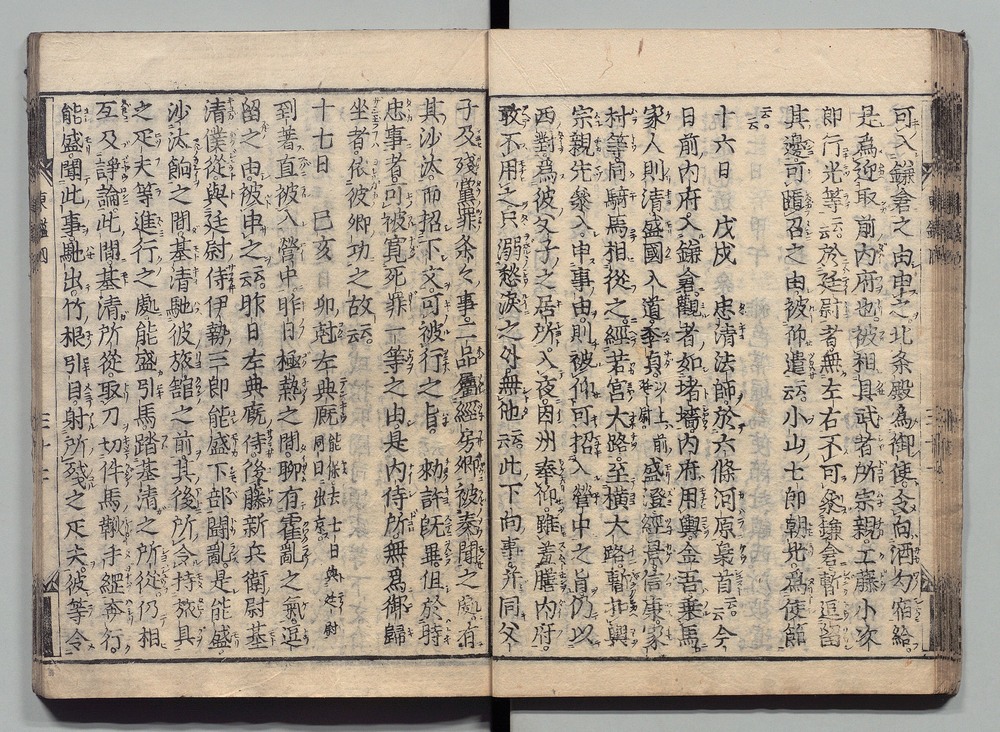 可入鎌倉之由申之北条殿為御使令向酒匂宿給
是為迎取前内府也被相具武者所宗親工藤小次
郎行光等云云於廷尉者無左右不可参鎌倉暫逗留
其邊可随召之由被仰遣云云小山七郎朝光為使節
云云
十六日 戊戌 忠清法師於六條河原梟首云云今
日前内府入鎌倉觀者如堵墻内府用輿金吾乗馬
家人則清盛國入道季貞盛澄經景信康家
村等同騎馬相從之經若宮大路至横大路暫扣輿
宗親先参入申事由則被仰可招入營中之旨仍以
西對為彼父子之居所入夜因州奉仰雖羞膳内府
敢不用之只溺愁涙之外無他云云此下向事并同父
子及殘黨罪条々事二品屬經房卿被奏聞之處有
其沙汰而招下文可被行之旨勅許既畢但於時
忠事者可被寛死罪一等之由是内侍所無為御歸
坐者依彼卿功之故云云
十七日 己亥 日卯剋左典厩能保去七日與廷尉同日出京
到著直被入營中昨日極熱之間聊有霍亂之氣逗
留之由被申之云云昨日左典厩侍後藤新兵衛尉基
清僕從與廷尉侍伊勢三郎能盛下部闘亂是能盛
沙汰餉之間基清馳彼旅舘之前其後所令持旅具
之疋夫等進行之處能盛引馬踏基清之所從仍相
互及諍論此間基清所從取刀切件馬鞦手經奔行
能盛聞此事馳出竹根引目射所殘之疋夫彼等令
東鑑四
三十二